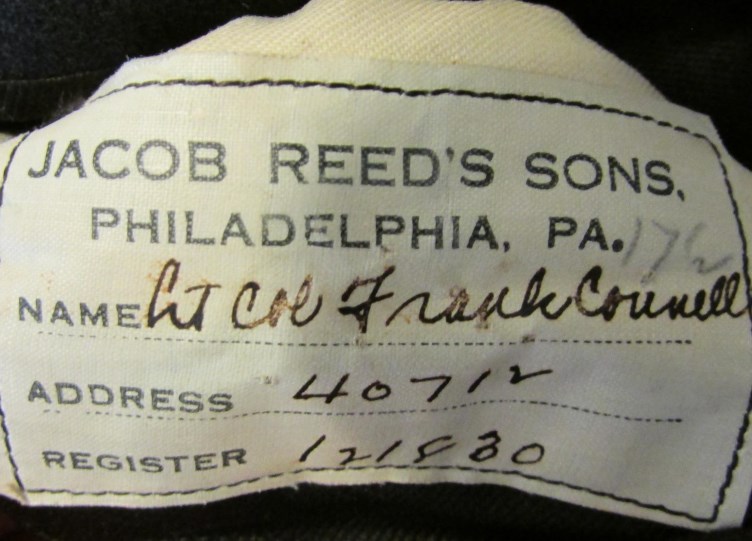 JACOB REED'S SONS,
PHILADELPHIA, PA.
NAME Lt Col Frank Connell
ADDRESS 40712
REGISTER 121830